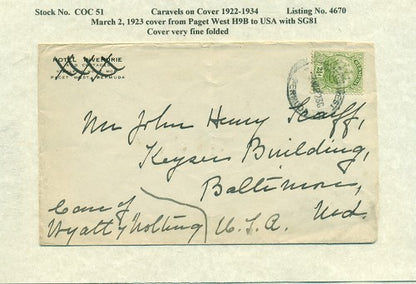 Stock No. COC 51 Caravels on Cover 1922-1934 Listing No. 4670
March 2, 1923 cover from Paget West H9B to USA with SG81
Cover very fine folded
HOTEL INVERURIE
PAGET WEST, BERMUDA
Mr John Henry Scarff,
Keyser Building,
Baltimore,
Md.
Care of
Wyatt & Nolting
U.S.A.